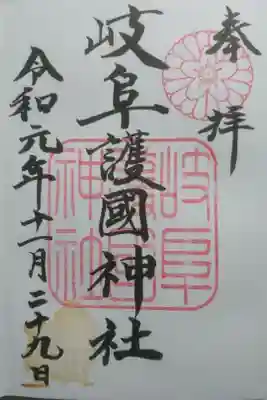 奉拝
岐阜護國神社
岐阜護國神社
令和元年十一月二十九日